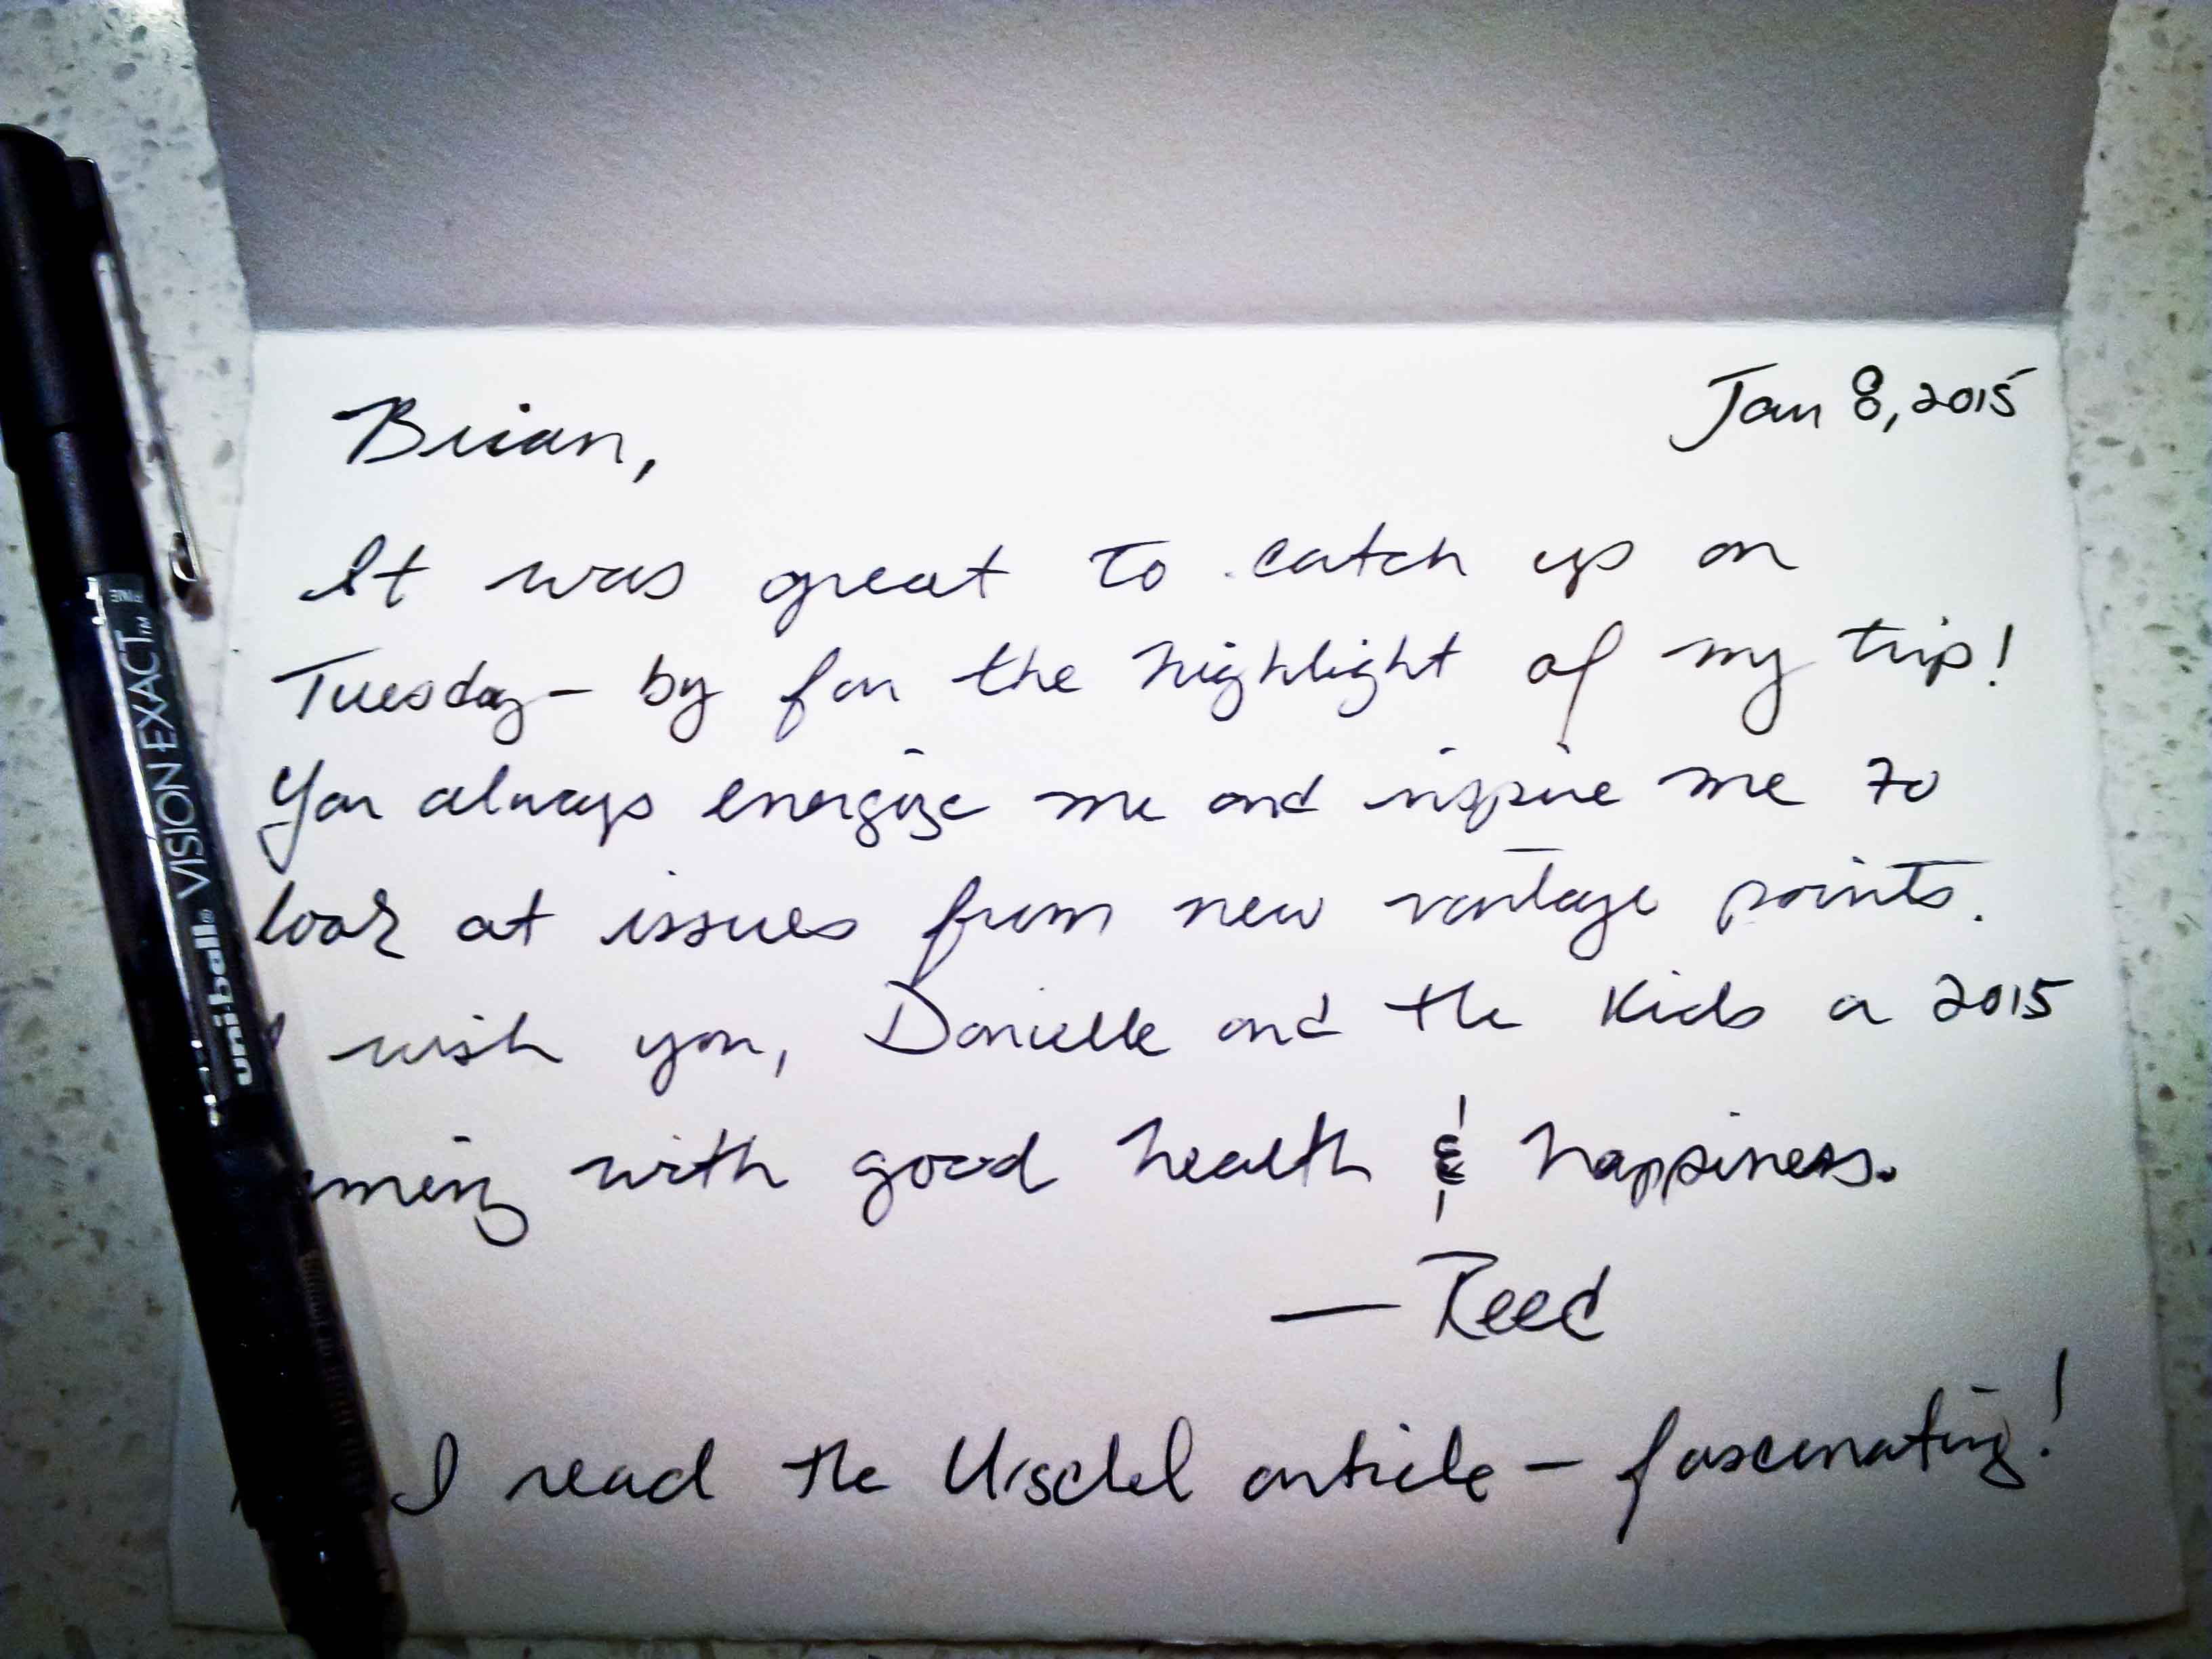 Jan 8, 2015
Brian,
It was great to catch up on
Tuesday - by far the highlight of my trip!
You always energize me and inspire me to
look at issues from new vantage points.
I wish you, Danielle and the kids a 2015
with good health & happiness.
— Reed
I read the article - fascinating!
uni-ball® VISION EXACT™ FINE